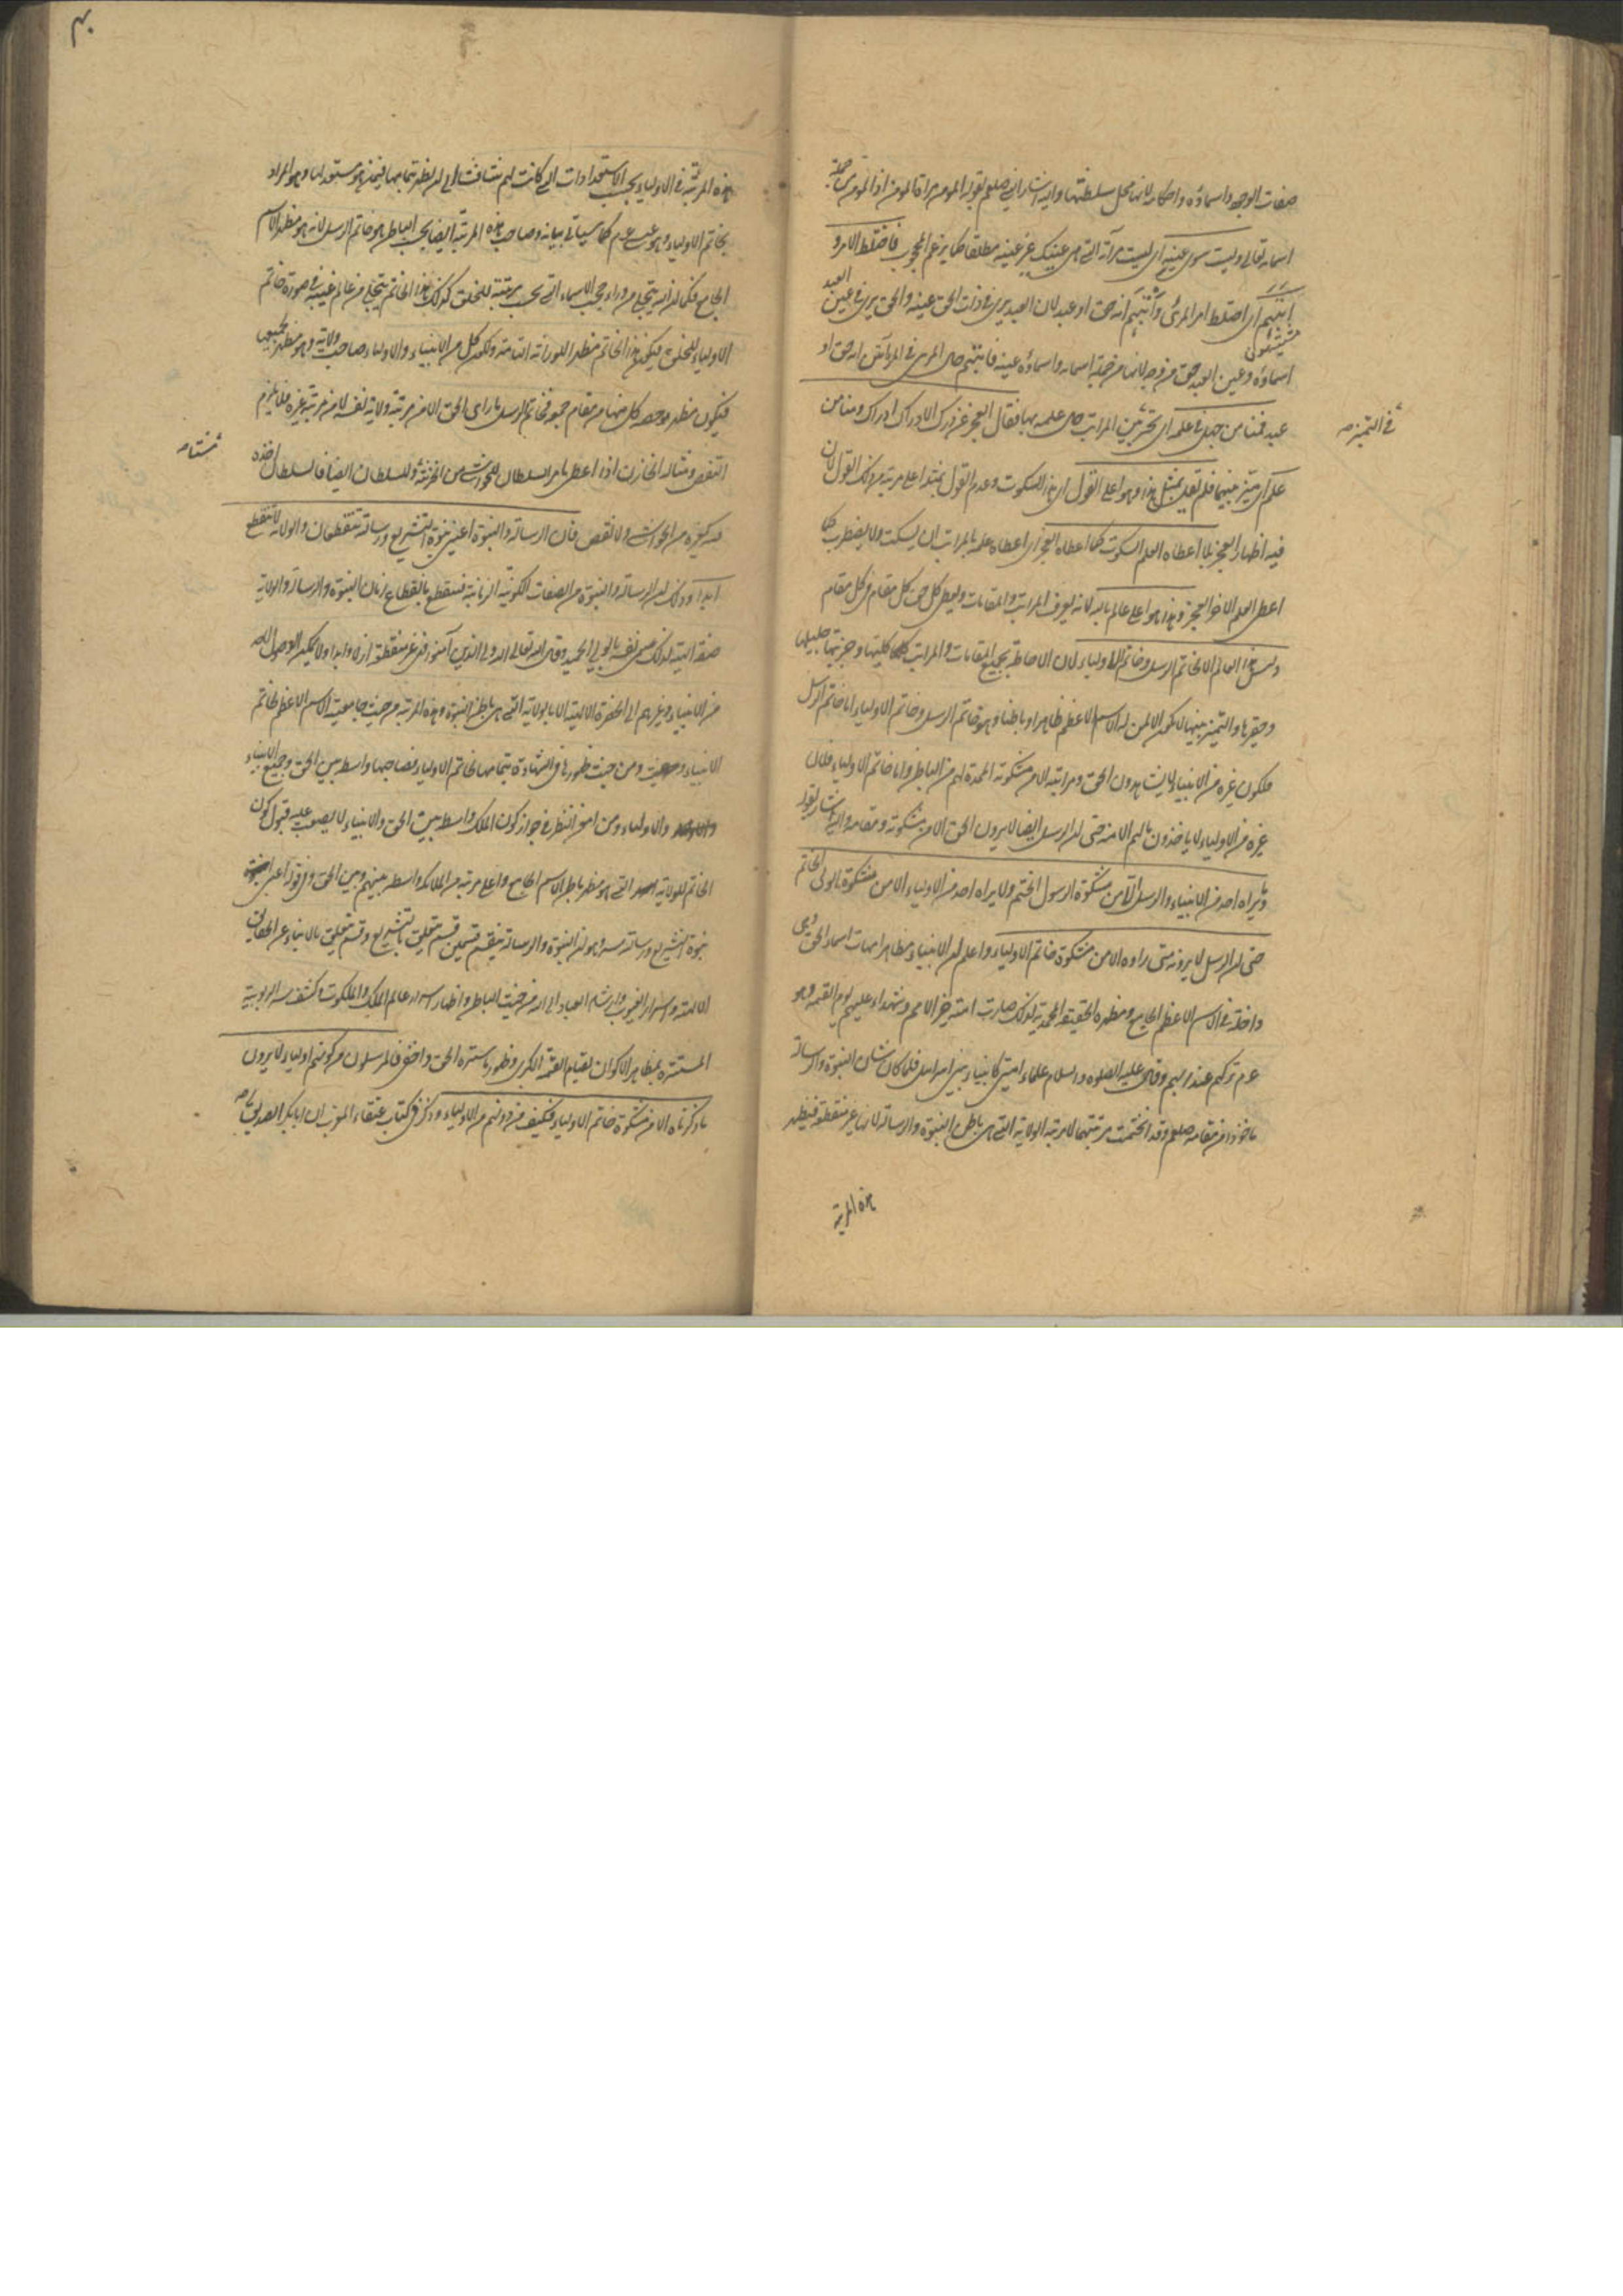 صفات الوجه واسماؤه واحكامه لانها محل سلطنتها واليه اشار النبى صلعم بقوله المومن مرآة المومن اذ المومن من جملة
اسمائه تعالى وليست سوى عينه اى ليست مرآته التى هى عينك غير عينه مطلقا كما يزعم المحجوب فاختلط الامر و
انبهم اى اختلط امر المرئى وانبهم انه حق او عبد لان العبد يرى فى ذات الحق عينه والحق يرى فى عين العبد
اسماؤه وعين العبد حق من وجه لانها من جملة اسمائه واسماؤه عينه فانبهم حال المرئى فى المرآتين انه حق او
عبد فمنا من جهل فى علمه اى تحير بين المراتب حال علمه بها فقال العجز عن درك الادراك ادراك ومنا من
فى التميز صح
علم اى ميز بينهما فلم يقل بمثل هذا وهو اعلى القول اى هذا السكوت وعدم القول بمثله اعلى مرتبة من ذلك القول لان
فيه اظهار العجز بل اعطاه العلم السكوت كما اعطاه العجز اى اعطاه علمه بالمراتب ان يسكت ولا يضطرب كما
اعطى العلم الاخر العجز وهذا هو اعلى عالم بالله لانه يعرف المراتب والمقامات ويعطى كل حق كل مقام فى كل مقام
وليس هذا العالم الا لخاتم الرسل وخاتم الاولياء لان الاحاطة بجميع المقامات والمراتب كليتها وجزئيتها جليلها
وحقيرها والتميز بينها لا يمكن الا لمن له الاسم الاعظم ظاهرا وباطنا وهو خاتم الرسل وخاتم الاولياء اما خاتم الرسل
فلكون غيره من الانبياء لا يشاهدون الحق ومراتبه الا من مشكوته الممدة لهم من الباطن واما خاتم الاولياء فلان
غيره من الاولياء لا ياخذون مالهم الا منه حتى ان الرسل ايضا لا يرون الحق الا من مشكوته ومقامه واليه اشار بقوله
وما يراه احد من الانبياء والرسل الا من مشكوة الرسول الختم ولا يراه احد من الاولياء الا من مشكوة الولى الخاتم
حتى ان الرسل لا يرونه متى راوه الا من مشكوة خاتم الاولياء واعلم ان الانبياء مظاهر امهات اسماء الحق وهى
داخلة فى الاسم الاعظم الجامع ومظهره الحقيقة المحمدية لذلك صارت امته خير الامم وشهداء عليهم يوم القيمة وهو
عم تزكيهم عند ربهم وقال عليه الصلوة والسلام علماء امتى كانبياء بنى اسرائيل فلما كان شان النبوة والرسالة
ماخوذا من مقامه صلعم وقد اختتمت مرتبتهما لا مرتبة الولاية التى هى باطن النبوة والرسالة لانها غير منقطعة فيظهر
هذه المرتبة
هذه المرتبة فى الاولياء بحسب الاستعدادات التى كانت لهم شيئا فشيئا الى ان يظهر بتمامها فيمن هو مستعد لها وهو المراد
بخاتم الاولياء وهو عيسى عم كما سياتى بيانه وصاحب هذه المرتبة ايضا بحسب الباطن هو خاتم الرسل لانه هو مظهر الاسم
الجامع فكما ان الله يتجلى من وراء حجب الاسماء التى تحت مرتبته للخلق كذلك هذا الخاتم يتجلى من عالم غيبه فى صورة خاتم
الاولياء للخلق فيكون هذا الخاتم مظهرا للولاية التامة ولكون كل من الانبياء والاولياء صاحب ولاية وهو مظهر لجميعها
فيكون مظهر حصة كل منها من مقام جمعه فخاتم الرسل ما راى الحق الا من مرتبة ولاية نفسه لا من مرتبة غيره فلا يلزم
النقص ومثاله الخازن اذا اعطى بامر السلطان للحواشى من الخزينة وللسلطان ايضا فالسلطان اخذه
منه كغيره من الحواشى ولا نقص فان الرسالة والنبوة اعنى نبوة التشريع ورسالته تنقطعان والولاية لا تنقطع
ابدا وذلك لان الرسالة والنبوة من الصفات الكونية الزمانية فينقطع بانقطاع زمان النبوة والرسالة والولاية
صفة الهية لذلك سمى نفسه بالولى الحميد وقال الله تعالى الله ولى الذين آمنوا فهى غير منقطعة ازلا وابدا ولا يمكن الوصول لاحد
من الانبياء وغيرهم الى الحضرة الالهية الا بالولاية التى هى باطن النبوة وهذه المرتبة من حيث جامعية الاسم الاعظم لخاتم
الانبياء ومن حيث ظهورها فى الشهادة بتمامها لخاتم الاولياء فصاحبها واسطة بين الحق وجميع الانبياء
والاولياء ومن امعن النظر فى جواز كون الملك واسطة بين الحق والانبياء لا يصعب عليه قبول كون
الخاتم للولاية التى هو مظهر باطن الاسم الجامع واعلى مرتبة من الملائكة واسطة بينهم وبين الحق وفى قوله اعنى
نبوة التشريع ورسالته سر وهو ان النبوة والرسالة ينقسم قسمين قسم يتعلق بالتشريع وقسم يتعلق بالانباء عن الحقائق
الالهية واسرار الغيوب وارشاد العباد الى الله من حيث الباطن واظهار اسرار عالم الملك والملكوت وكشف سر الربوبية
المستترة بمظاهر الاكوان لقيام القيمة الكبرى وظهور ما ستره الحق واخفى فالمرسلون من كونهم اولياء لا يرون
ما ذكرناه الا من مشكوة خاتم الاولياء فكيف من دونهم من الاولياء وذكر فى كتاب عنقاء المغرب ان ابا بكر الصديق